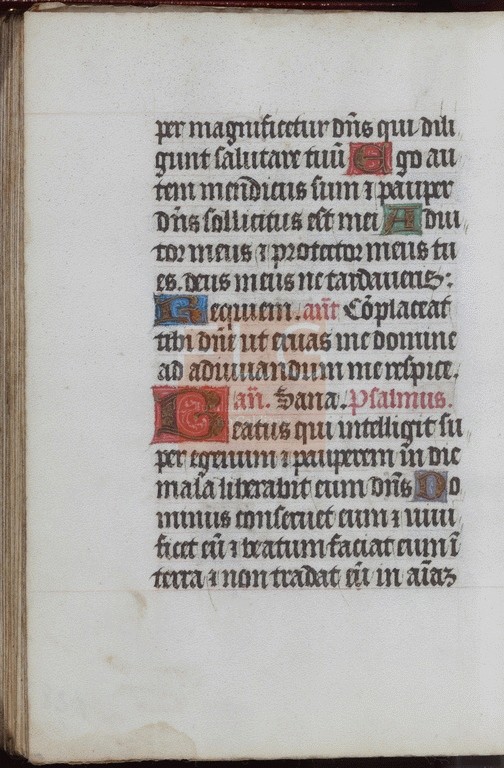 per magnificetur dn̄s qui dili
gunt salutare tuū Ego au
tem mendicus sum ⁊ pauper
dn̄s sollicitus est mei Adiu
tor meus ⁊ protector meus tu
es. deus meus ne tardaueris:
Requiem. ant̄ Cōplaceat
tibi dn̄e ut eruas me domine
ad adiuuandum me respice.
an̄. Sana. Psalmus.
Beatus qui intelligit su
per egenum ⁊ pauperem in die
mala liberabit eum dn̄s Do
minus conseruet eum ⁊ uiui
ficet eū ⁊ beatum faciat eum ī
terra ⁊ non tradat eū in aīaꝫ